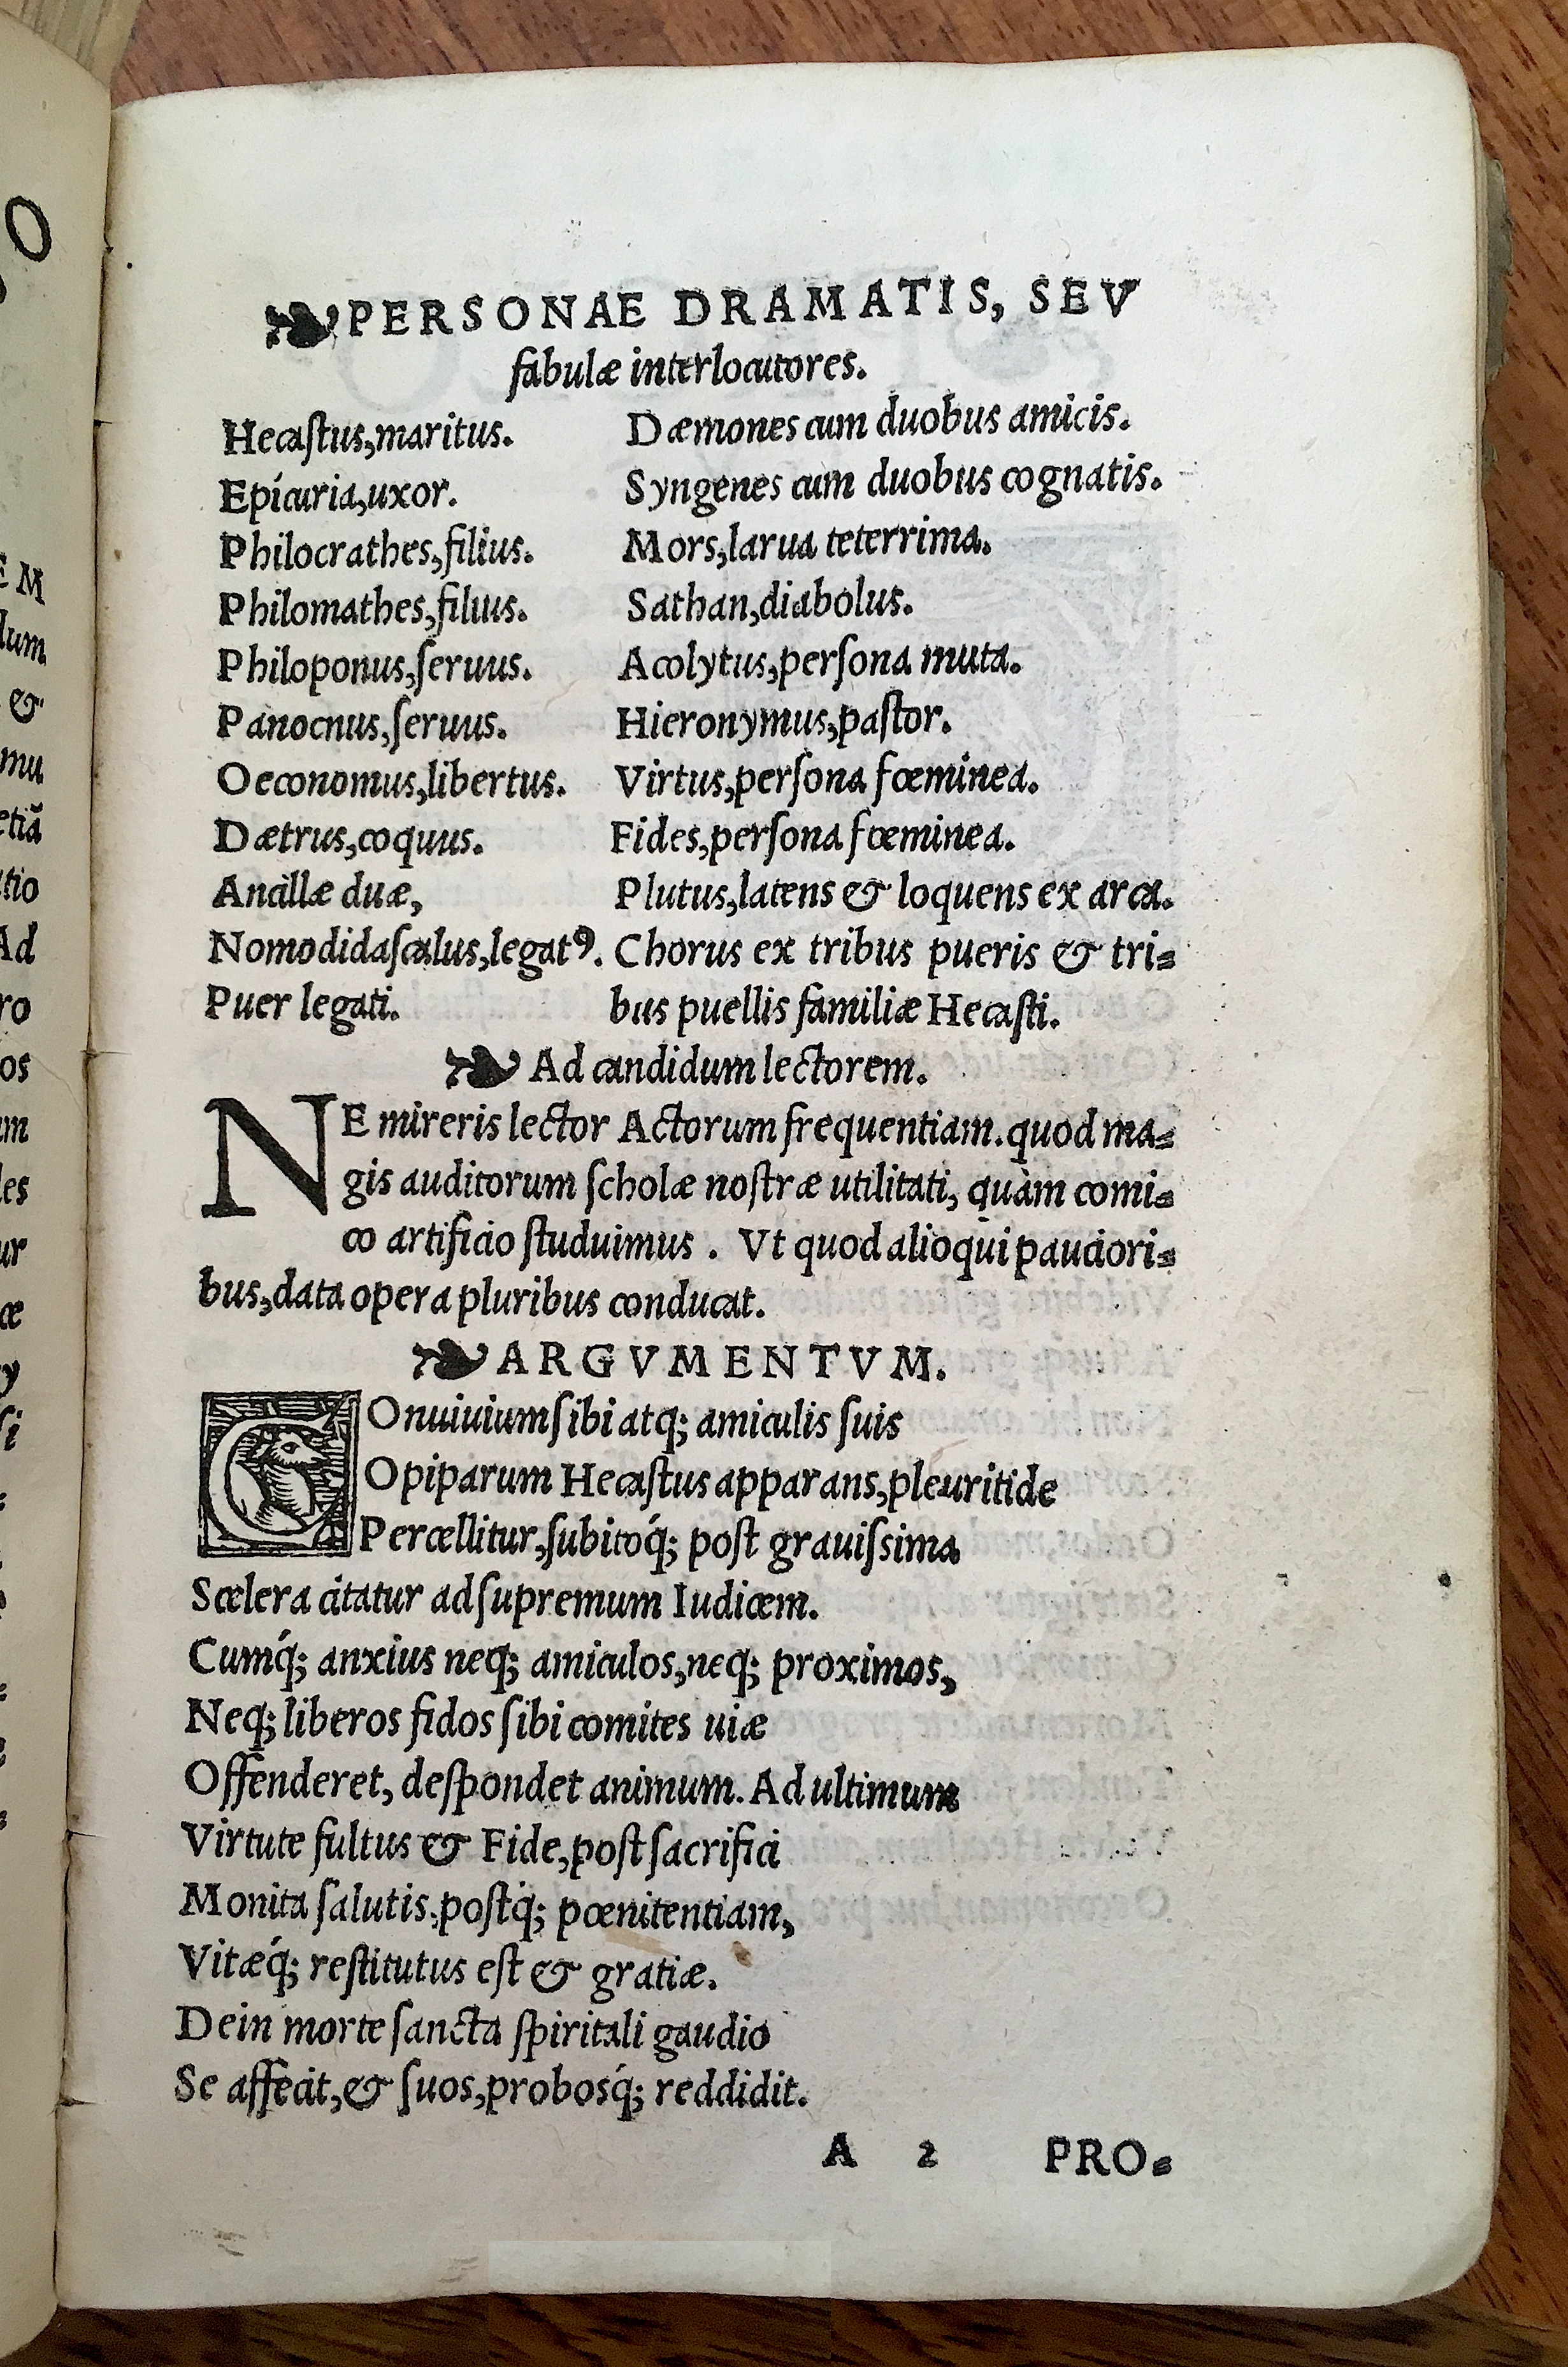 ❧PERSONAE DRAMATIS, SEV
fabulæ interlocutores.
Hecaſtus,maritus.
Epicuria,uxor.
Philocrathes,filius.
Philomathes,filius.
Philoponus,ſeruus.
Panocnus,ſeruus.
Oeconomus,libertus.
Dætrus,coquus.
Ancillæ duæ,
Nomodidaſcalus,legatꝰ.
Puer legati.
Dæmones cum duobus amicis.
Syngenes cum duobus cognatis.
Mors,larua teterrima.
Sathan,diabolus.
Acolytus,perſona muta.
Hieronymus,paſtor.
Virtus,perſona fœminea.
Fides,perſona fœminea.
Plutus,latens & loquens ex arca.
Chorus ex tribus pueris & tri-
bus puellis familiæ Hecaſti.
❧ Ad candidum lectorem.
NE mireris lector Actorum frequentiam.quod ma-
gis auditorum ſcholæ noſtræ utilitati, quàm comi-
co artificio ſtuduimus . Vt quod alioqui paucíori-
bus,data opera pluribus conducat.
❧ARGVMENTVM.
COnuiuium ſibi atq; amiculis ſuis
Opiparum Hecaſtus apparans,pleuritide
Percellitur,ſubitoq́; poſt grauiſsima
Scelera citatur ad ſupremum Iudicem.
Cumq́; anxius neq; amiculos,neq; proximos,
Neq; liberos fidos ſibi comites uiæ
Offenderet, deſpondet animum. Ad ultimum
Virtute fultus & Fide,poſt ſacrifici
Monita ſalutis:poſtq́; pœnitentiam,
Vitæq́; reſtitutus eſt & gratiæ.
Dein morte ſancta ſpiritali gaudio
Se affecit,& ſuos,probosq́; reddidit.
A 2 PRO-